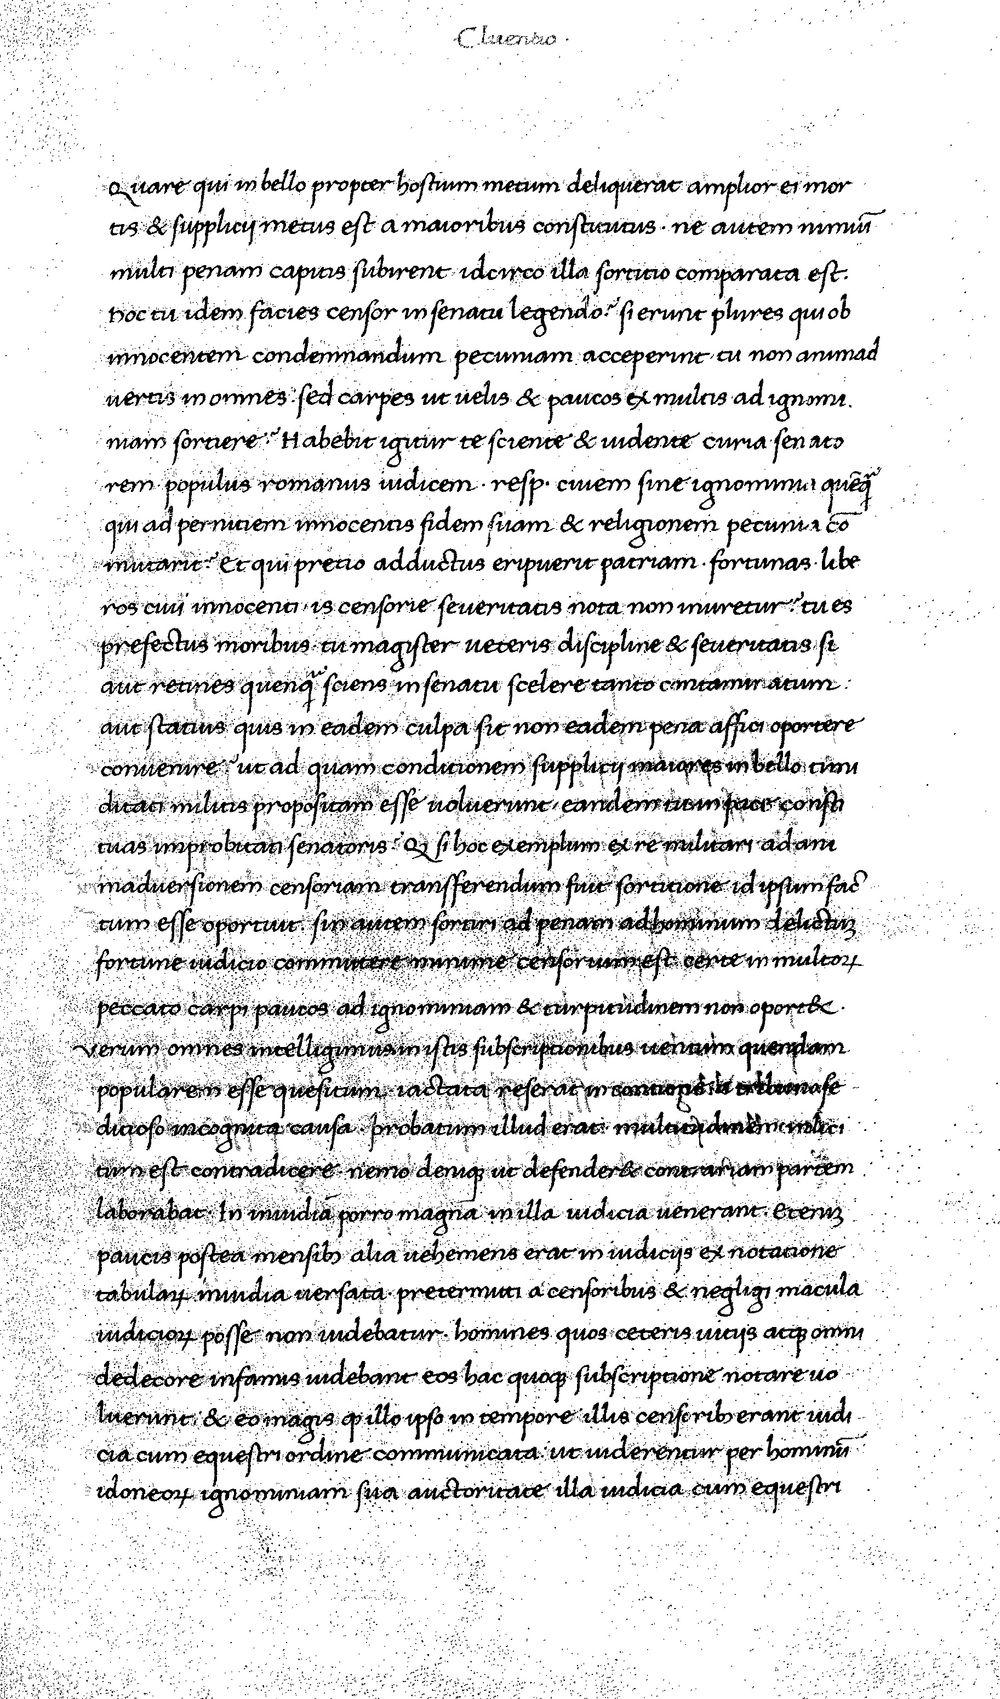 Cluentio ·
Quare qui in bello propter hostium metum deliquerat amplior ei mor
tis & supplicij metus est a maioribus constitutus · ne autem nimiū
multi penam capitis subirent idcirco illa sortitio comparata est.
hoc tu idem facies censor in senatu legendo? si erunt plures qui ob
innocentem condemnandum pecuniam acceperint · tu non animad
vertis in omnes · sed carpes ut uelis & paucos ex multis ad ignomi.
niam sortiere? Habebit igitur te sciente & uidente curia senato
rem populus romanus iudicem · resp. ciuem sine ignominia quēq̃
qui ad pernitiem innocentis fidem suam & religionem pecunia cō
mutarit? Et qui pretio adductus eripuerit patriam · fortunas · libe
ros ciui innocenti · is censorie seueritatis nota non inuretur? tu es
prefectus moribus · tu magister ueteris discipline & seueritatis si
aut retines quenq̃ sciens in senatu scelere tanto contaminatum :
aut statuis quis in eadem culpa sit non eadem pena affici oportere
conuenire? ut ad quam conditionem supplicij maiores in bello timi
ditati militis propositam esse uoluerunt · eandem tu in pace consti
tuas improbitati senatoris? Q, si hoc exemplum ex re militari ad ani
maduersionem censoriam transfferendum fuit sortitione id ipsum fac̄
tum esse oportuit. sin autem sortiri ad penam ad hominum delictuꝫ
fortune iudicio committere minime censorium est certe in multoꝝ
peccato carpi paucos ad ignominiam & turpitudinem non oport& ·
Verum omnes intelligimus in istis subscriptionibus uentum quendam
popularem esse quesitum. iactata res erat in contione a tribuno se
ditioso incognita causa · probatum illud erat multitudini
tum est contradicere · nemo deniqꝫ ut defender& contrariam partem
laborabat. In inuidiā porro magnā in illa iudicia uenerant. Eteniꝫ
paucis postea mensibꝫ alia uehemens erat in iudicijs ex notatione
tabulaꝝ inuidia uersata · pretermitti a censoribus & negligi macula
iudicioꝝ posse non uidebatur · homines quos ceteris uitijs atqꝫ omni
dedecore infamis uidebant eos hac quoqꝫ subscriptione notare uo
luerunt · & eo magis ꝙ illo ipso in tempore illis censoribꝫ erant iudi
cia cum equestri ordine communicata · ut uiderentur per hominū
idoneoꝝ ignominiam sua auctoritate illa iudicia cum equestri